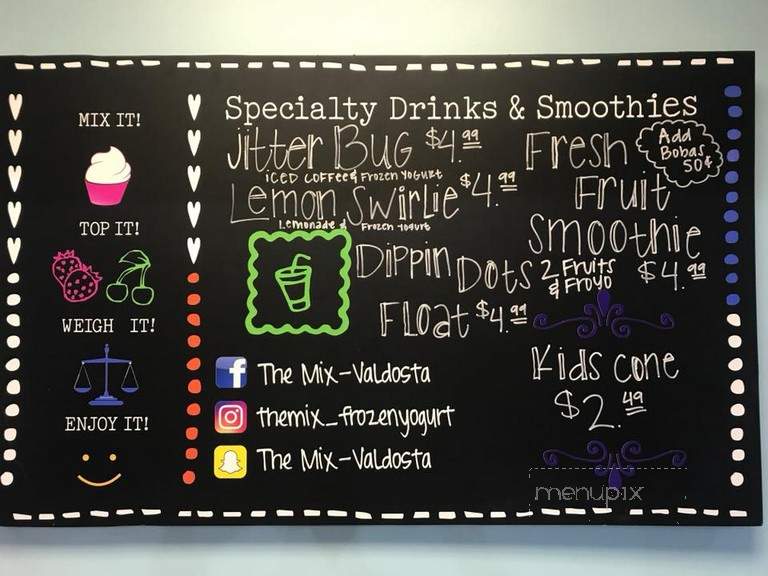 MIX IT!
TOP IT!
WEIGH IT!
ENJOY IT!
Specialty Drinks & Smoothies
Jitter Bug $4.99
Iced Coffee & Frozen Yogurt
Lemon Swirlie $4.99
Lemonade & Frozen Yogurt
Dippin Dots
Float $4.99
Fresh
Fruit
Smoothie
2 Fruits
& Froyo
$4.99
Add
Bobas
50¢
Kids Cone
$2.49
The Mix-Valdosta
themix_frozenyogurt
The Mix-Valdosta
menupix